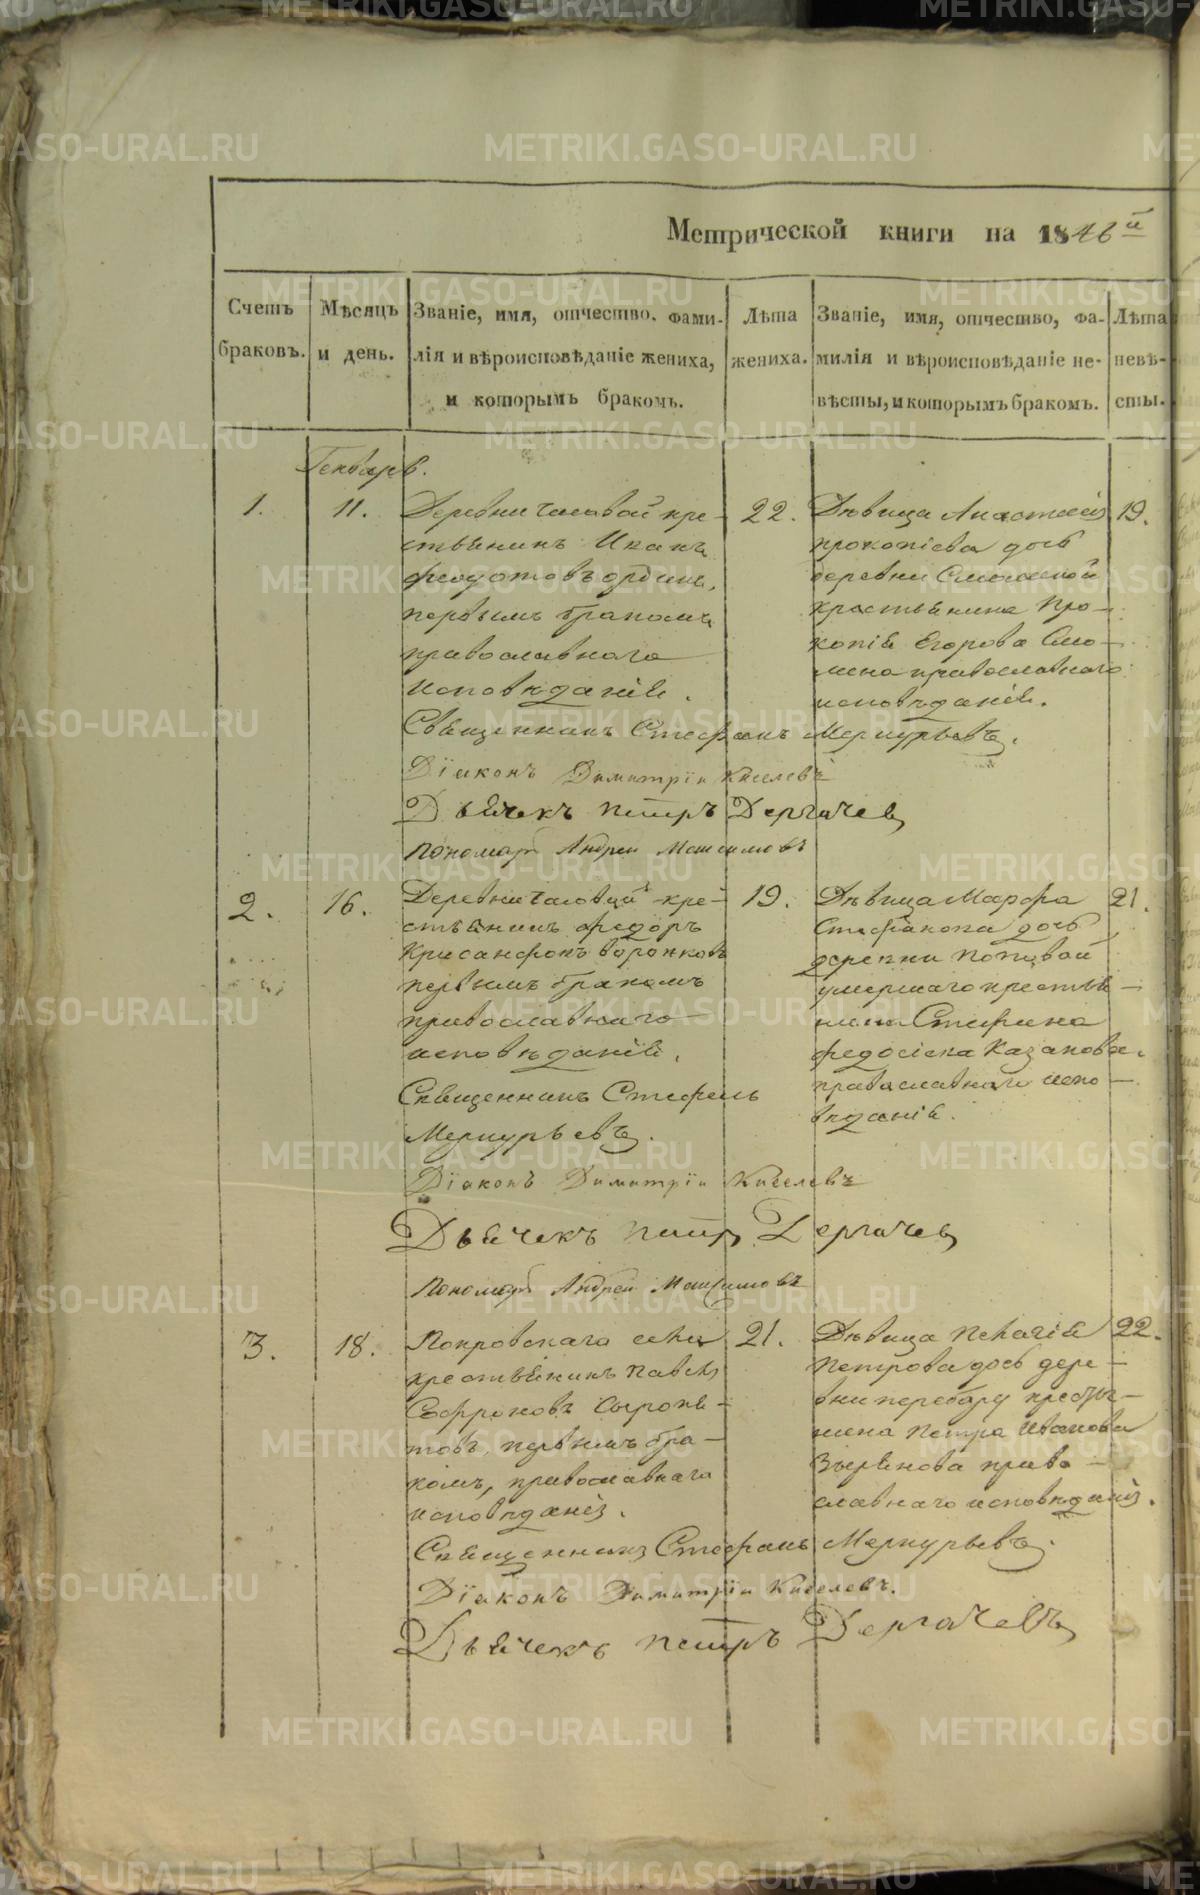 Метрической книги на 1846 й
Счетъ браковъ.
Мѣсяцъ и день.
Званіе, имя, отчество, фами-
лія и вѣроисповѣданіе жениха,
и которымъ бракомъ.
Лѣта жениха.
Званіе, имя, отчество, фа-
милія и вѣроисповѣданіе не-
вѣсты, и которымъ бракомъ.
Лѣта невѣ-
сты.
Генварь.
1.
11.
Деревни Часовой кре-
стьянинъ Иванъ
Феодотовъ
первымъ бракомъ
православнаго
исповѣданія.
22.
Дѣвица Анастасія
Прокопіева дочь
деревни
крестьянина Про-
копія Егорова Смо-
лина православнаго
исповѣданія.
19.
Священникъ Стефанъ Меркурьевъ.
Діаконъ Димитрій Киселевъ
Дьячекъ Петръ Дергачевъ
Пономарь Андрей Максимовъ
2.
16.
Деревни Часовой кре-
стьянинъ Федоръ
Крисанфовъ Воронковъ
первымъ бракомъ
православнаго
исповѣданія.
19.
Дѣвица Марфа
Стефанова дочь
деревни
умершаго крестья-
нина Стефана
Федосіева Казакова
православнаго испо-
вѣданія.
21.
Священникъ Стефанъ
Меркурьевъ.
Діаконъ Димитрій Киселевъ
Дьячекъ Петръ Дергачевъ
Пономарь Андрей Максимовъ
3.
18.
Покровскаго села
крестьянинъ Павелъ
Софроновъ Сыропя-
товъ, первымъ бра-
комъ, православнаго
исповѣданія.
21.
Дѣвица Пелагія
Петрова дочь дере-
вни Перебору кресть-
нина Петра Иванова
Зырянова право-
славнаго исповѣданія.
22.
Священникъ Стефанъ Меркурьевъ.
Діаконъ Димитрій Киселевъ.
Дьячекъ Петръ Дергачевъ
METRIKI.GASO-URAL.RU